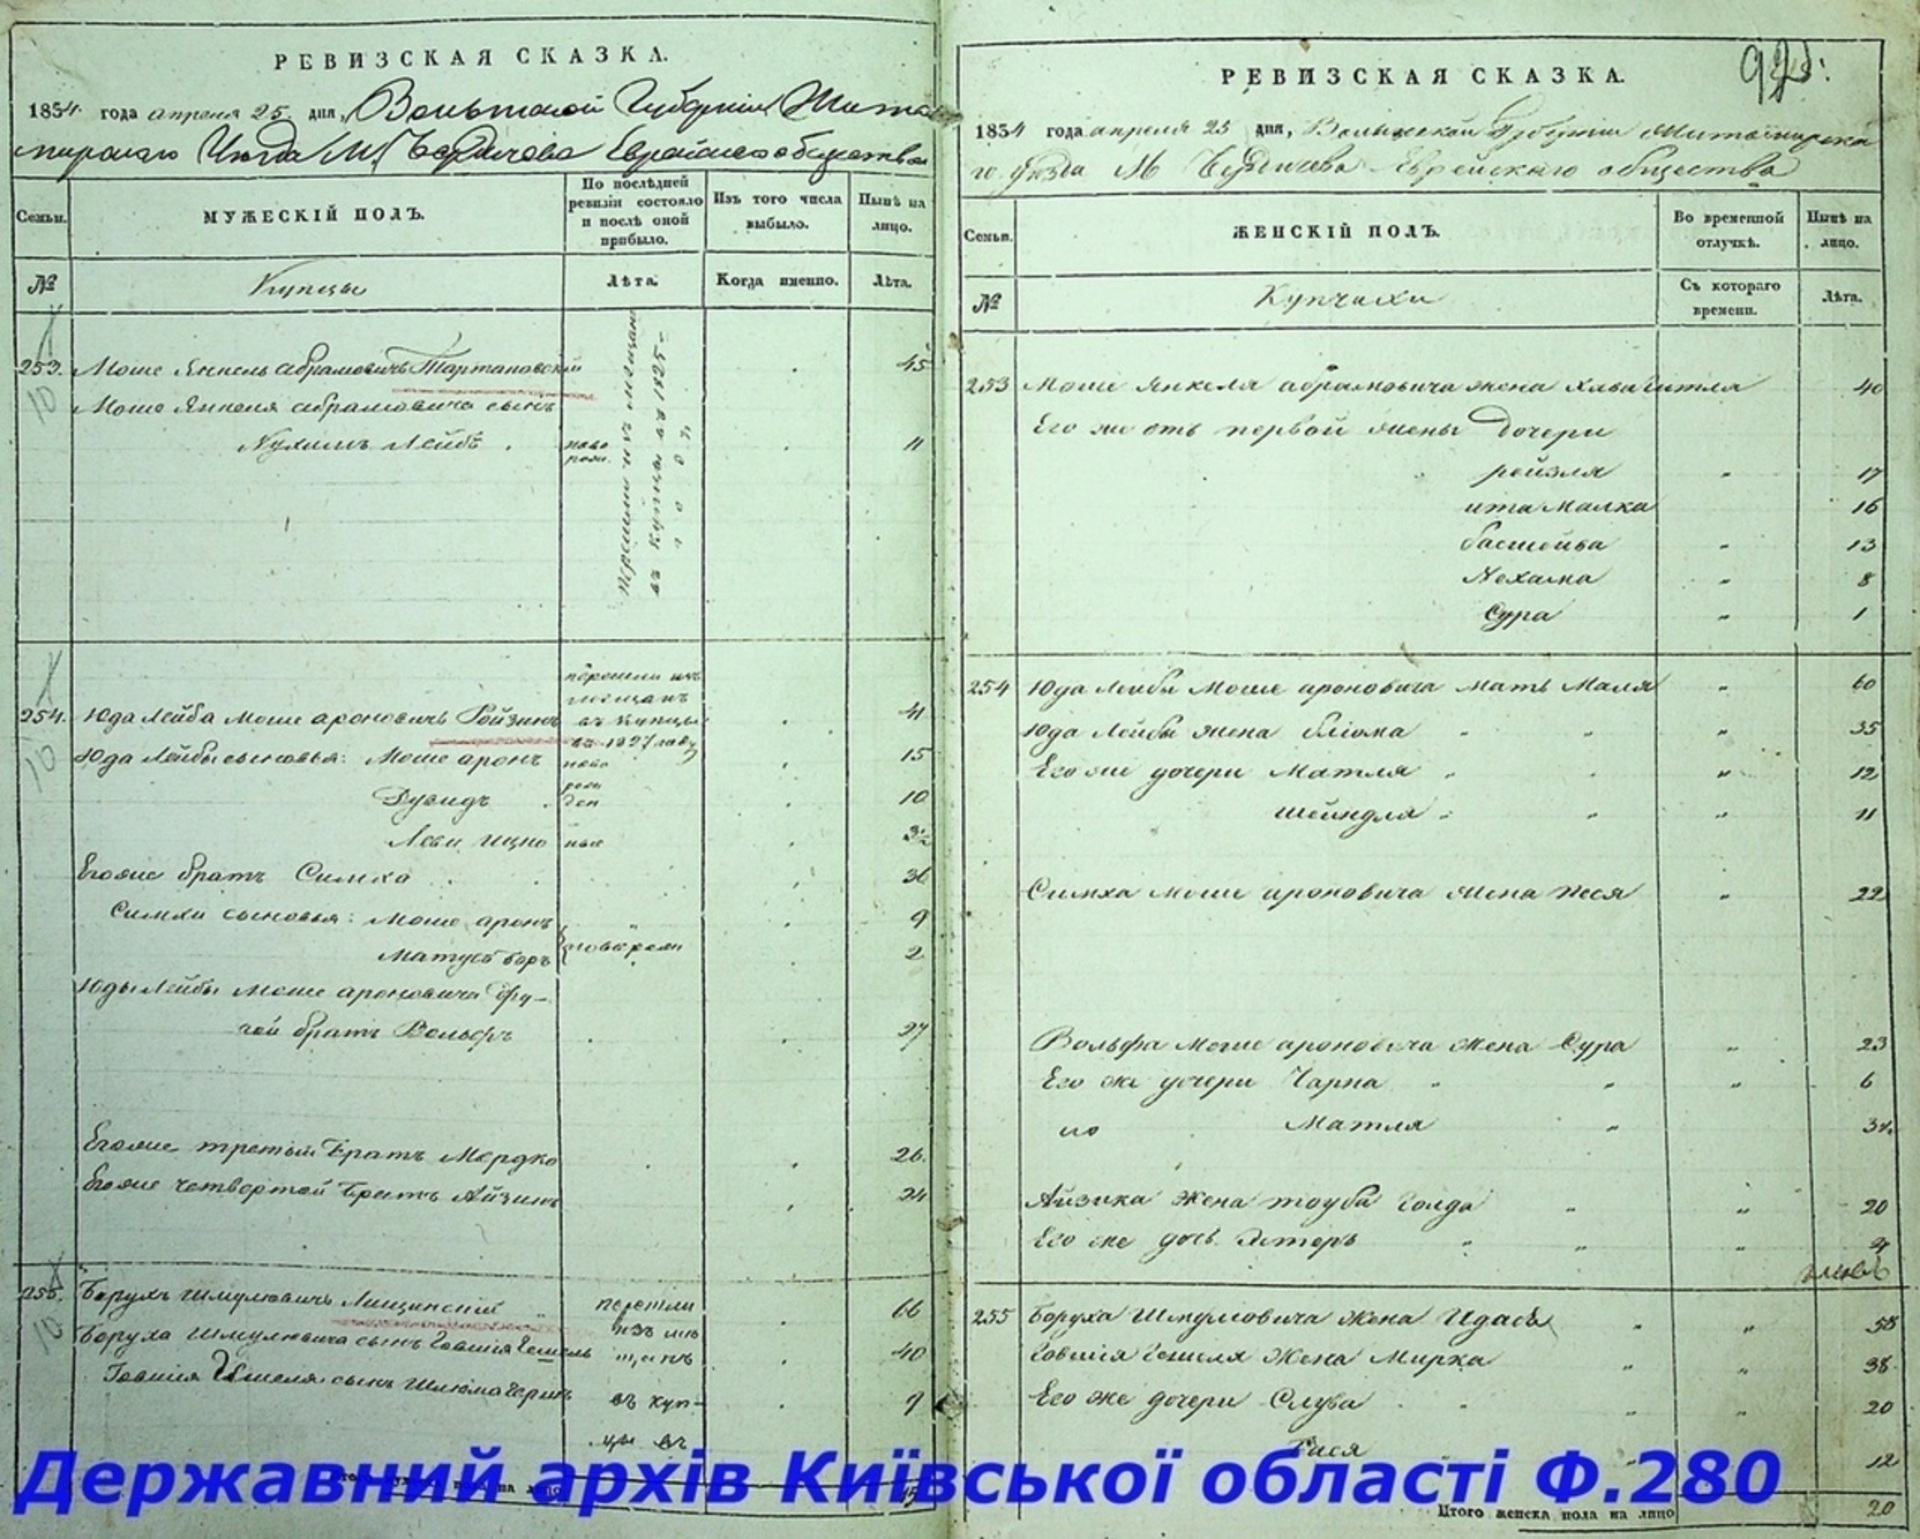 РЕВИЗСКАЯ СКАЗКА.
1834 года апреля 25 дня, Волынской Губернии Жито
мирскаго Уезда М. Бердичева Еврейскаго общества
Семьи.
МУЖЕСКІЙ ПОЛЪ.
По послѣдней ревизіи состояло и послѣ оной прибыло.
Изъ того числа выбыло.
Нынѣ на лицо.
№
Купцы
Лѣта.
Когда именно.
Лѣта.
253. Моше Янкель Абрамовичъ Тартаковскій 45
10
Моше Янкеля Абрамовича сынъ
Нухимъ Лейбъ ново рожд. 11
Перешли изъ мещанъ
въ купцы въ 1825
году
254. Юда Лейба Моше Ароновичъ Ройзинъ 41
перешли изъ
мещанъ
въ купцы
въ 1827 году
10
Юда Лейбы сыновья: Моше Аронъ 15
Дувидъ 10
Леви Ицко 3½
ново
рож
ден
ные
Егоже братъ Симха 36
Симхи сыновья: Моше Аронъ 9
Матусъ Беръ новорожд 2
Юды Лейбы Моше Ароновича дру-
гой братъ Вольфъ 27
Егоже третий братъ Мордко 26.
Егоже четвертой братъ Айзикъ 24
255. Борухъ Шмулювичъ Лищинский 66
10
Боруха Шмулювича сынъ Говшія Гешель 40
Говшія Гешеля сынъ Шлюма Гершъ 9
перешли
изъ ме
щанъ
въ куп-
цы въ
15
РЕВИЗСКАЯ СКАЗКА.
1834 года апреля 25 дня, Волынской Губернии Житомирска
го уезда М Бердичева Еврейскаго общества
Семьи.
ЖЕНСКІЙ ПОЛЪ.
Во временной отлучкѣ.
Нынѣ на лицо.
№
Купчихи
Съ котораго времени.
Лѣта.
253 Моше Янкеля Абрамовича жена Хава Гитля 40
Его же отъ первой жены дочери
Рейзля " 17
Ита Малка 16
Басшева " 13
Нехама " 8
Сура " 1
254 Юда Лейбы Моше Ароновича мать Маля " 60
Юда Лейбы жена Блюма " 35
Его же дочери Матля " 12
Шейндля " 11
Симха Моше Ароновича жена Песя " 22
Вольфа Моше Ароновича жена Сура " 23
Его же дочери Чарна " 6
Матля " 3½
Айзика жена Тоуба Голда " 20
Его же дочь Эстеръ " 4
255 Боруха Шмулювича жена Идась " 58
Говшія Гешеля жена Мирка " 38
Его же дочери Слува " 20
Тися 12
Итого женска пола на лицо 20
Державний архів Київської області Ф.280